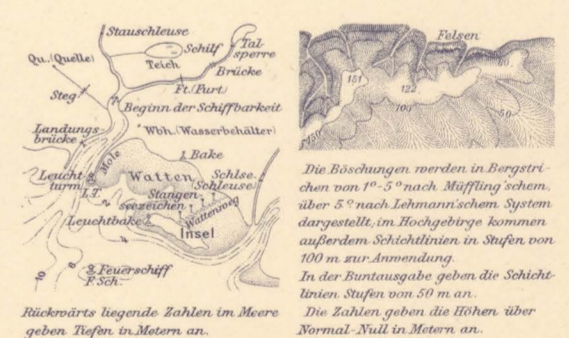 Stauschleuse
Schilf
Teich
Tal-
sperre
Qu. (Quelle)
Brücke
Ft. (Furt)
Steg
Beginn der Schiffbarkeit
Landungs-
brücke
Wbh. (Wasserbehälter)
Mole
1 Bake
Leucht-
turm
L.T.
Watten
Schlse.
(Schleuse)
Stangen-
seezeichen
Wattenweg
Leuchtbake
Insel
2
4
6
10
Feuerschiff
F. Sch.
Rückwärts liegende Zahlen im Meere
geben Tiefen in Metern an.
Felsen
151
122
100
60
50
150
Die Böschungen werden in Bergstri-
chen von 1°-5° nach Müffling'schem,
über 5° nach Lehmann'schem System
dargestellt; im Hochgebirge kommen
außerdem Schichtlinien in Stufen von
100 m zur Anwendung.
In der Buntausgabe geben die Schicht-
linien Stufen von 50 m an.
Die Zahlen geben die Höhen über
Normal-Null in Metern an.